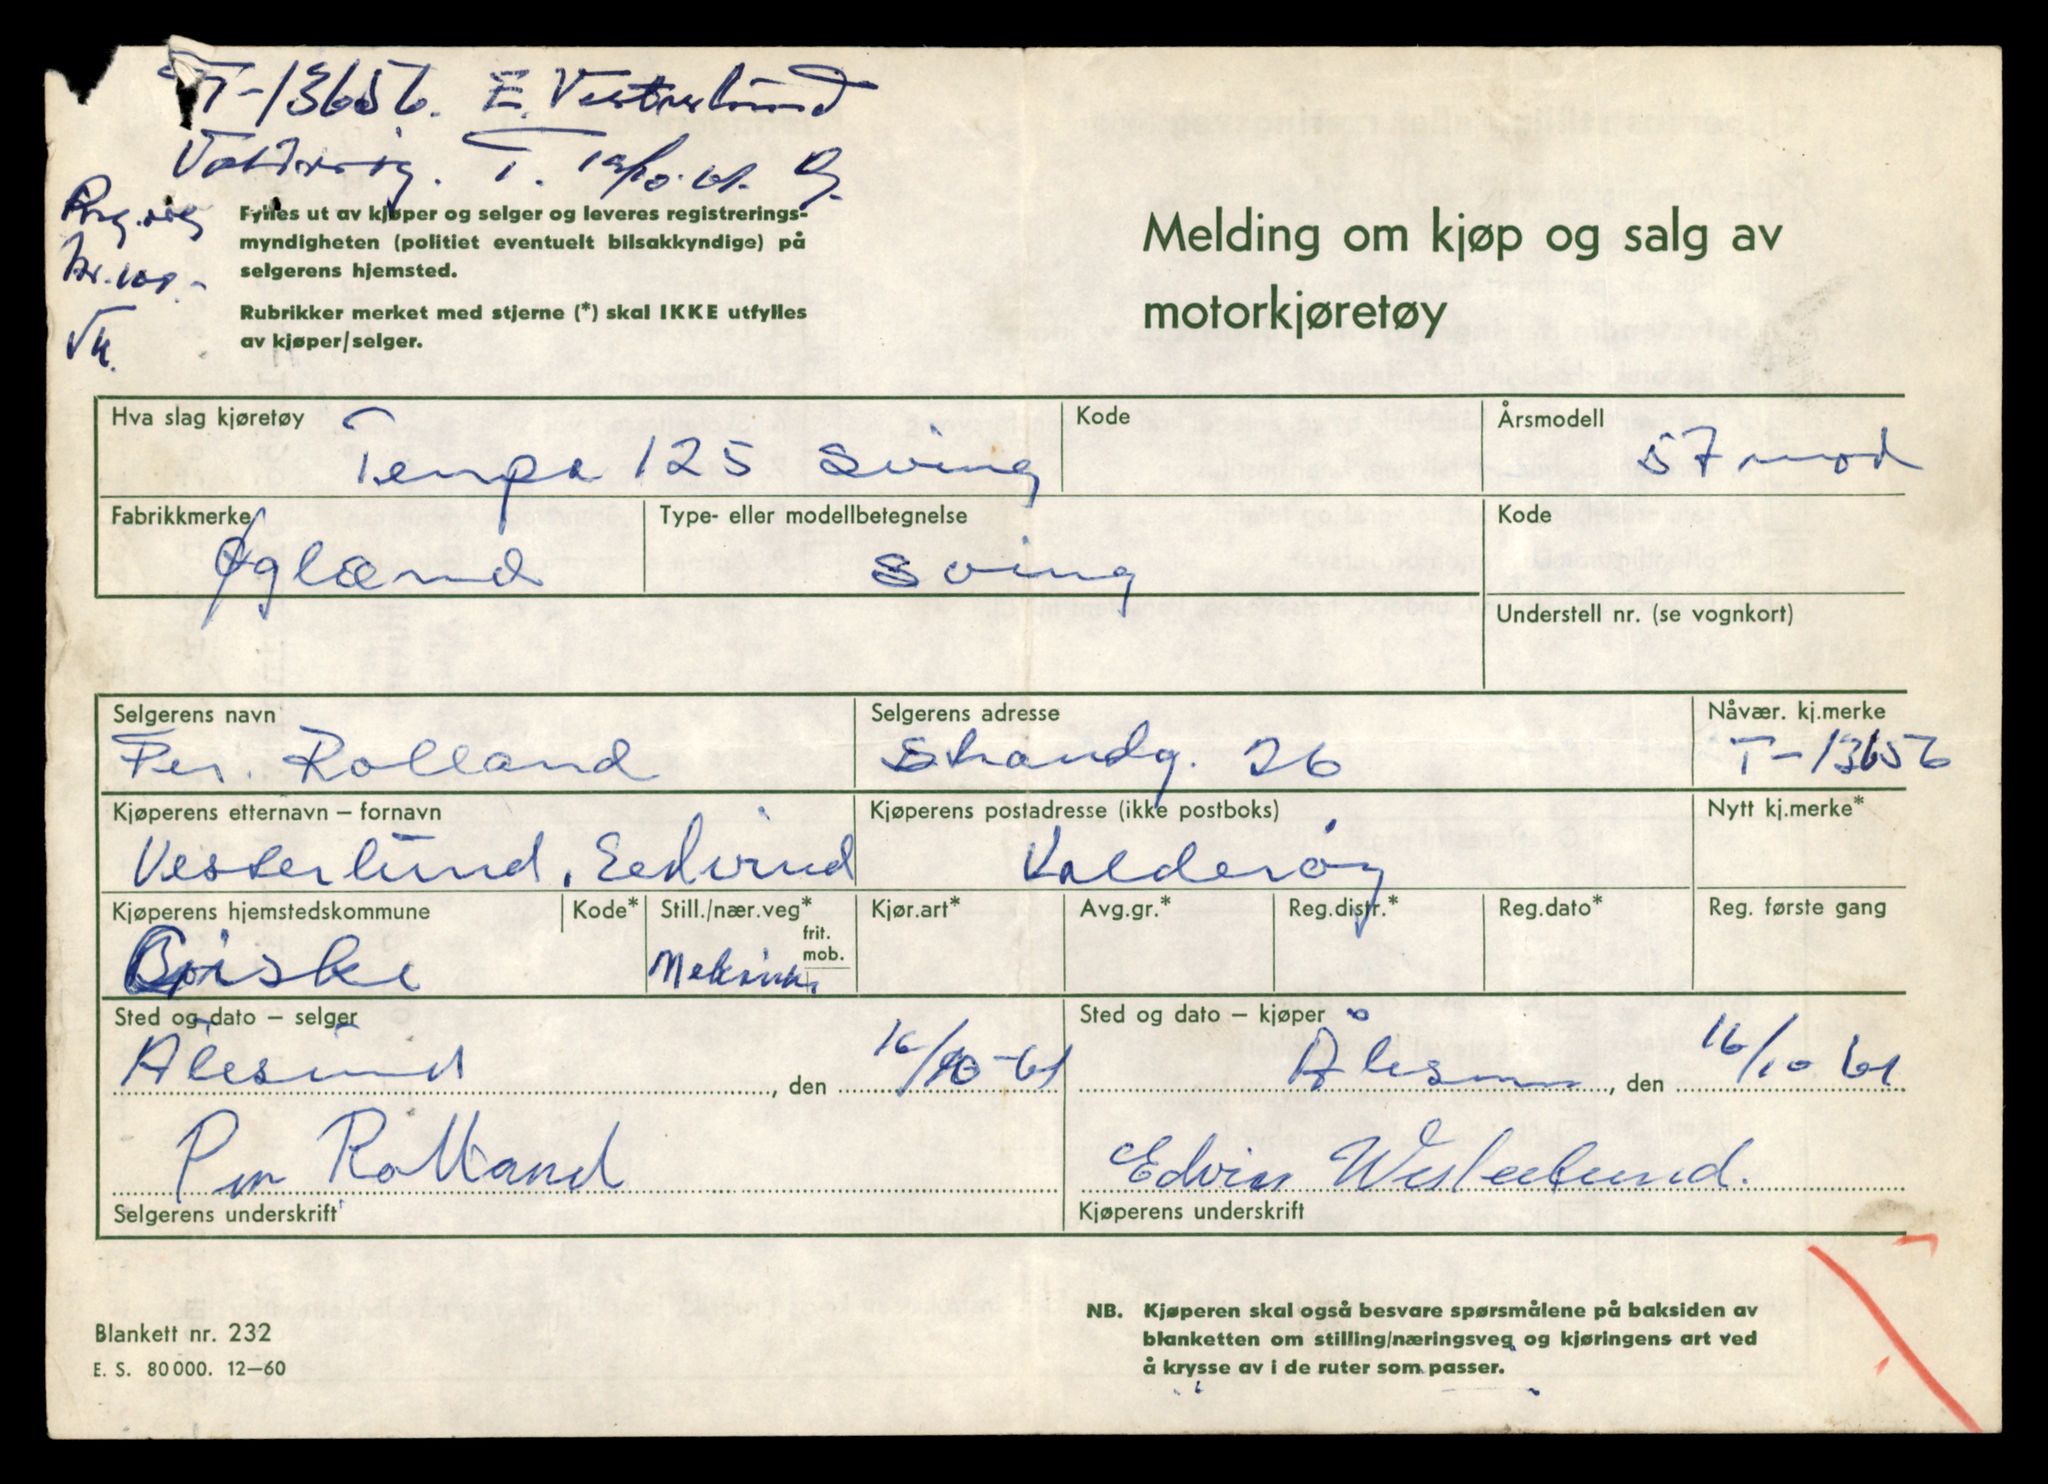 T-13656. E. Vesterlund
Valderøy. T. 19/10-61.
Reg. avg
Kr. 100.-
Fylles ut av kjøper og selger og leveres registrerings-
myndigheten (politiet eventuelt bilsakkyndige) på
selgerens hjemsted.
Rubrikker merket med stjerne (*) skal IKKE utfylles
av kjøper/selger.
Melding om kjøp og salg av
motorkjøretøy
Hva slag kjøretøy Tempo 125 Sving Kode Årsmodell 57 mod
Fabrikkmerke Øglænd Type- eller modellbetegnelse Sving Kode
Understell nr. (se vognkort)
Selgerens navn Per. Rolland Selgerens adresse Strandg. 26 Nåvær. kj.merke T-13656
Kjøperens etternavn – fornavn Vesterlund, Edvind Kjøperens postadresse (ikke postboks) Valderøy Nytt kj.merke*
Kjøperens hjemstedskommune Giske Kode* Still./nær.veg* frit. mob. Kjør.art* Avg.gr.* Reg.distr.* Reg.dato* Reg. første gang
Sted og dato – selger Ålesund, den 16/10-61 Sted og dato – kjøper Ålesun, den 16/10 61
Per Rolland Edvin Westerlund.
Selgerens underskrift Kjøperens underskrift
NB. Kjøperen skal også besvare spørsmålene på baksiden av
blanketten om stilling/næringsveg og kjøringens art ved
å krysse av i de ruter som passer.
Blankett nr. 232
E. S. 80 000. 12–60